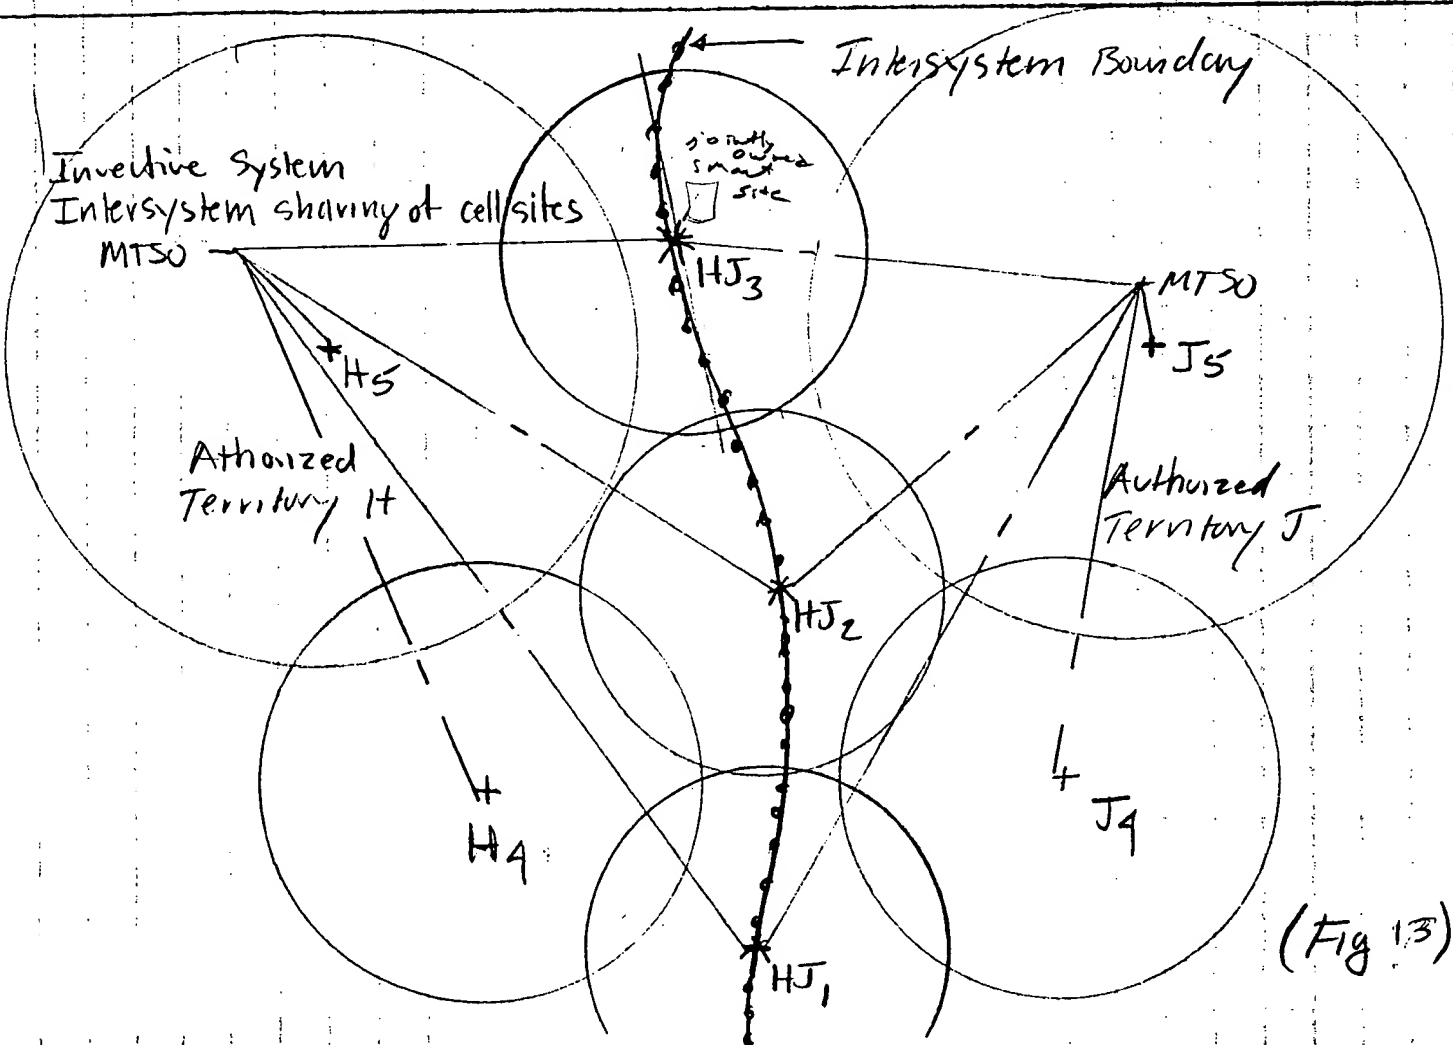 Intersystem Boundary
jointly
owned
smart
site
Inventive System
Intersystem sharing of cell sites
MTSO
HJ3
MTSO
H5
J5
Athorized
Territory H
Authorized
Territory J
HJ2
H4
J4
(Fig 13)
HJ1